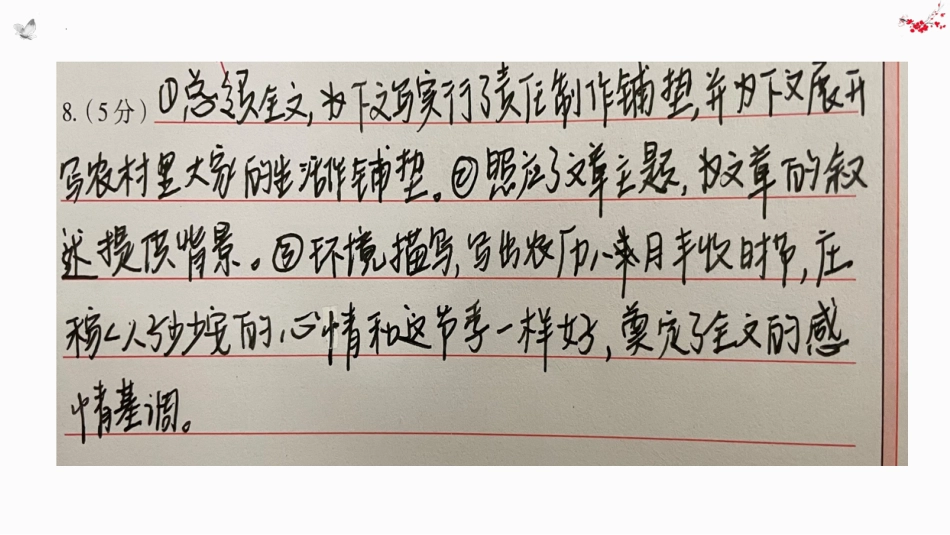 8.(5分)①总领全文,为下文写实行了责任制作铺垫,并为下文展开
写农村里大家的生活作铺垫。②照应了文章主题,为文章的叙
述提供背景。③环境描写,写出农历八月丰收时节,庄
稼人的心情和这节季一样好,奠定了全文的感
情基调。